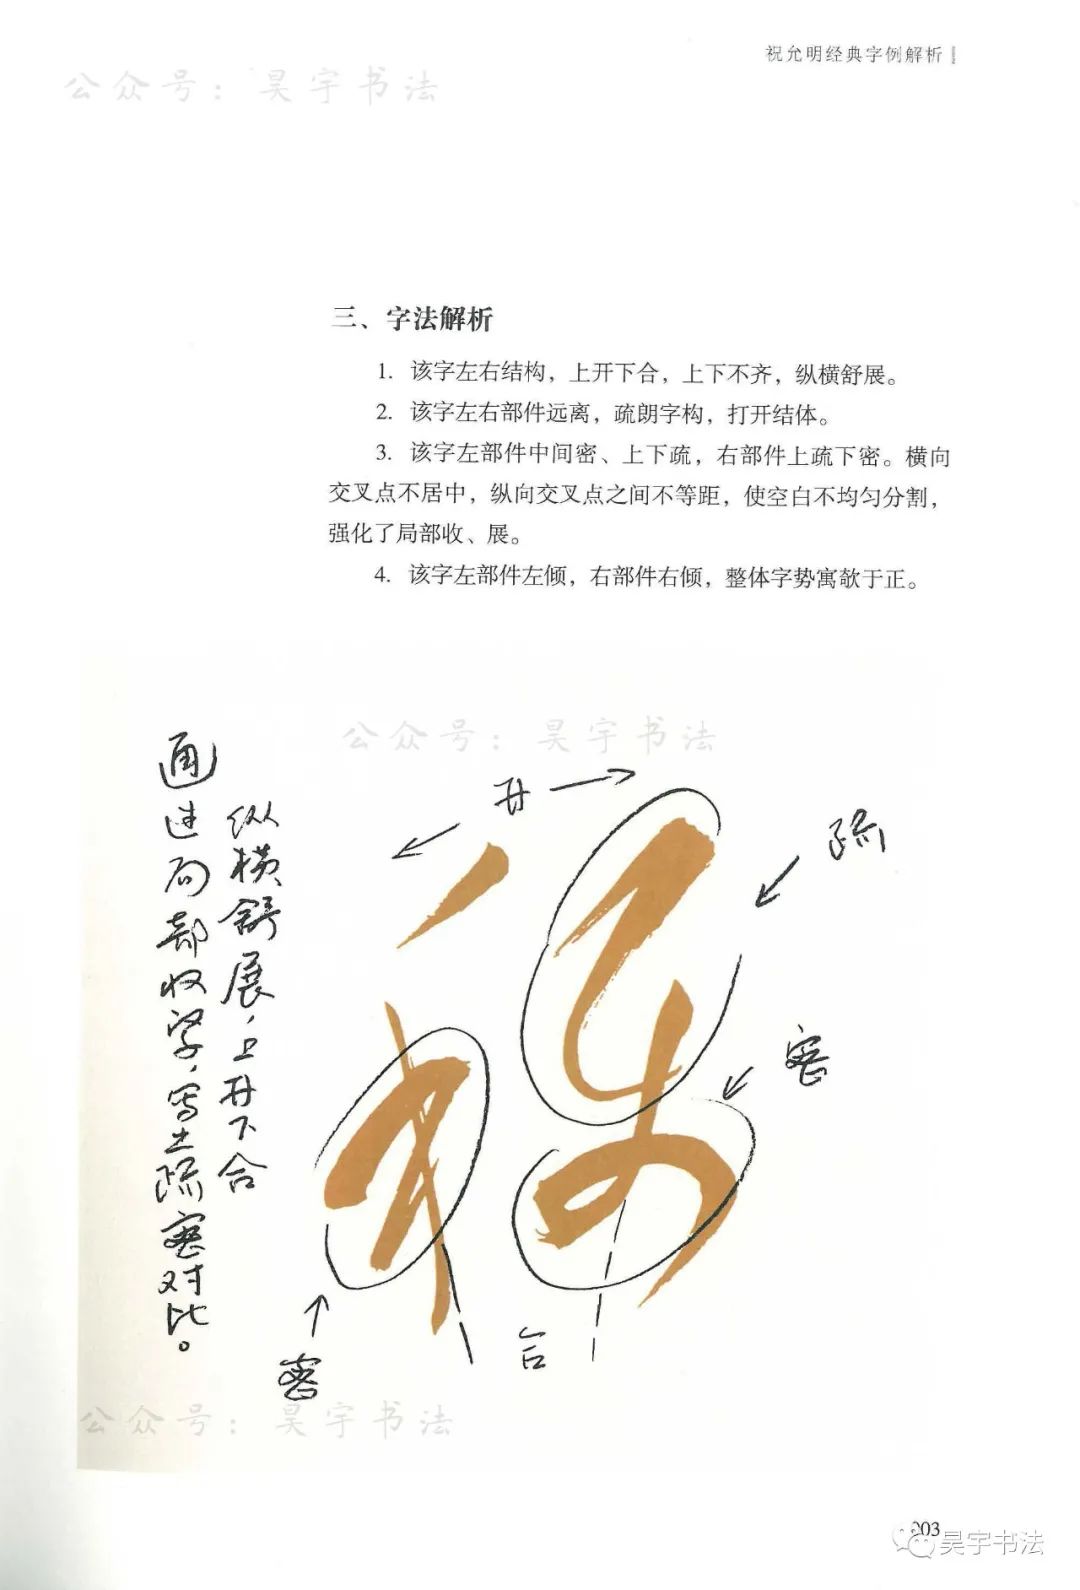 祝允明经典字例解析
公众号：昊宇书法
三、字法解析
1. 该字左右结构，上开下合，上下不齐，纵横舒展。
2. 该字左右部件远离，疏朗字构，打开结体。
3. 该字左部件中间密、上下疏，右部件上疏下密。横向
交叉点不居中，纵向交叉点之间不等距，使空白不均匀分割，
强化了局部收、展。
4. 该字左部件左倾，右部件右倾，整体字势寓欹于正。
公众号：昊宇书法
纵横舒展，上开下合
通过局部收紧，写出疏密对比。
开
疏
密
合
密
公众号：昊宇书法
203
昊宇书法